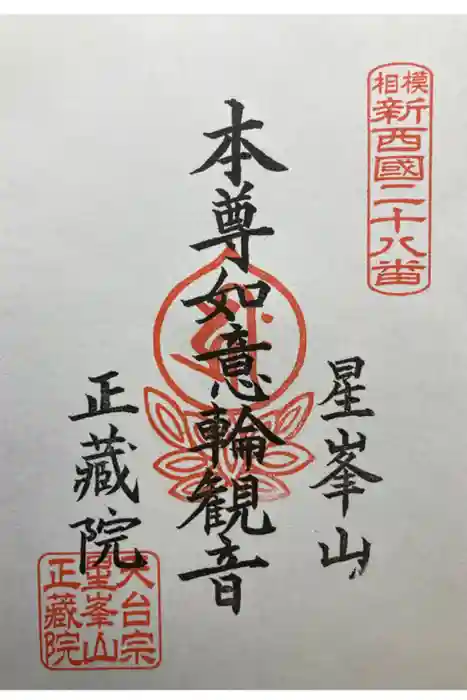 相模
新西國二十八番
星峯山
本尊如意輪観音
正藏院
天台宗
星峯山
正藏院